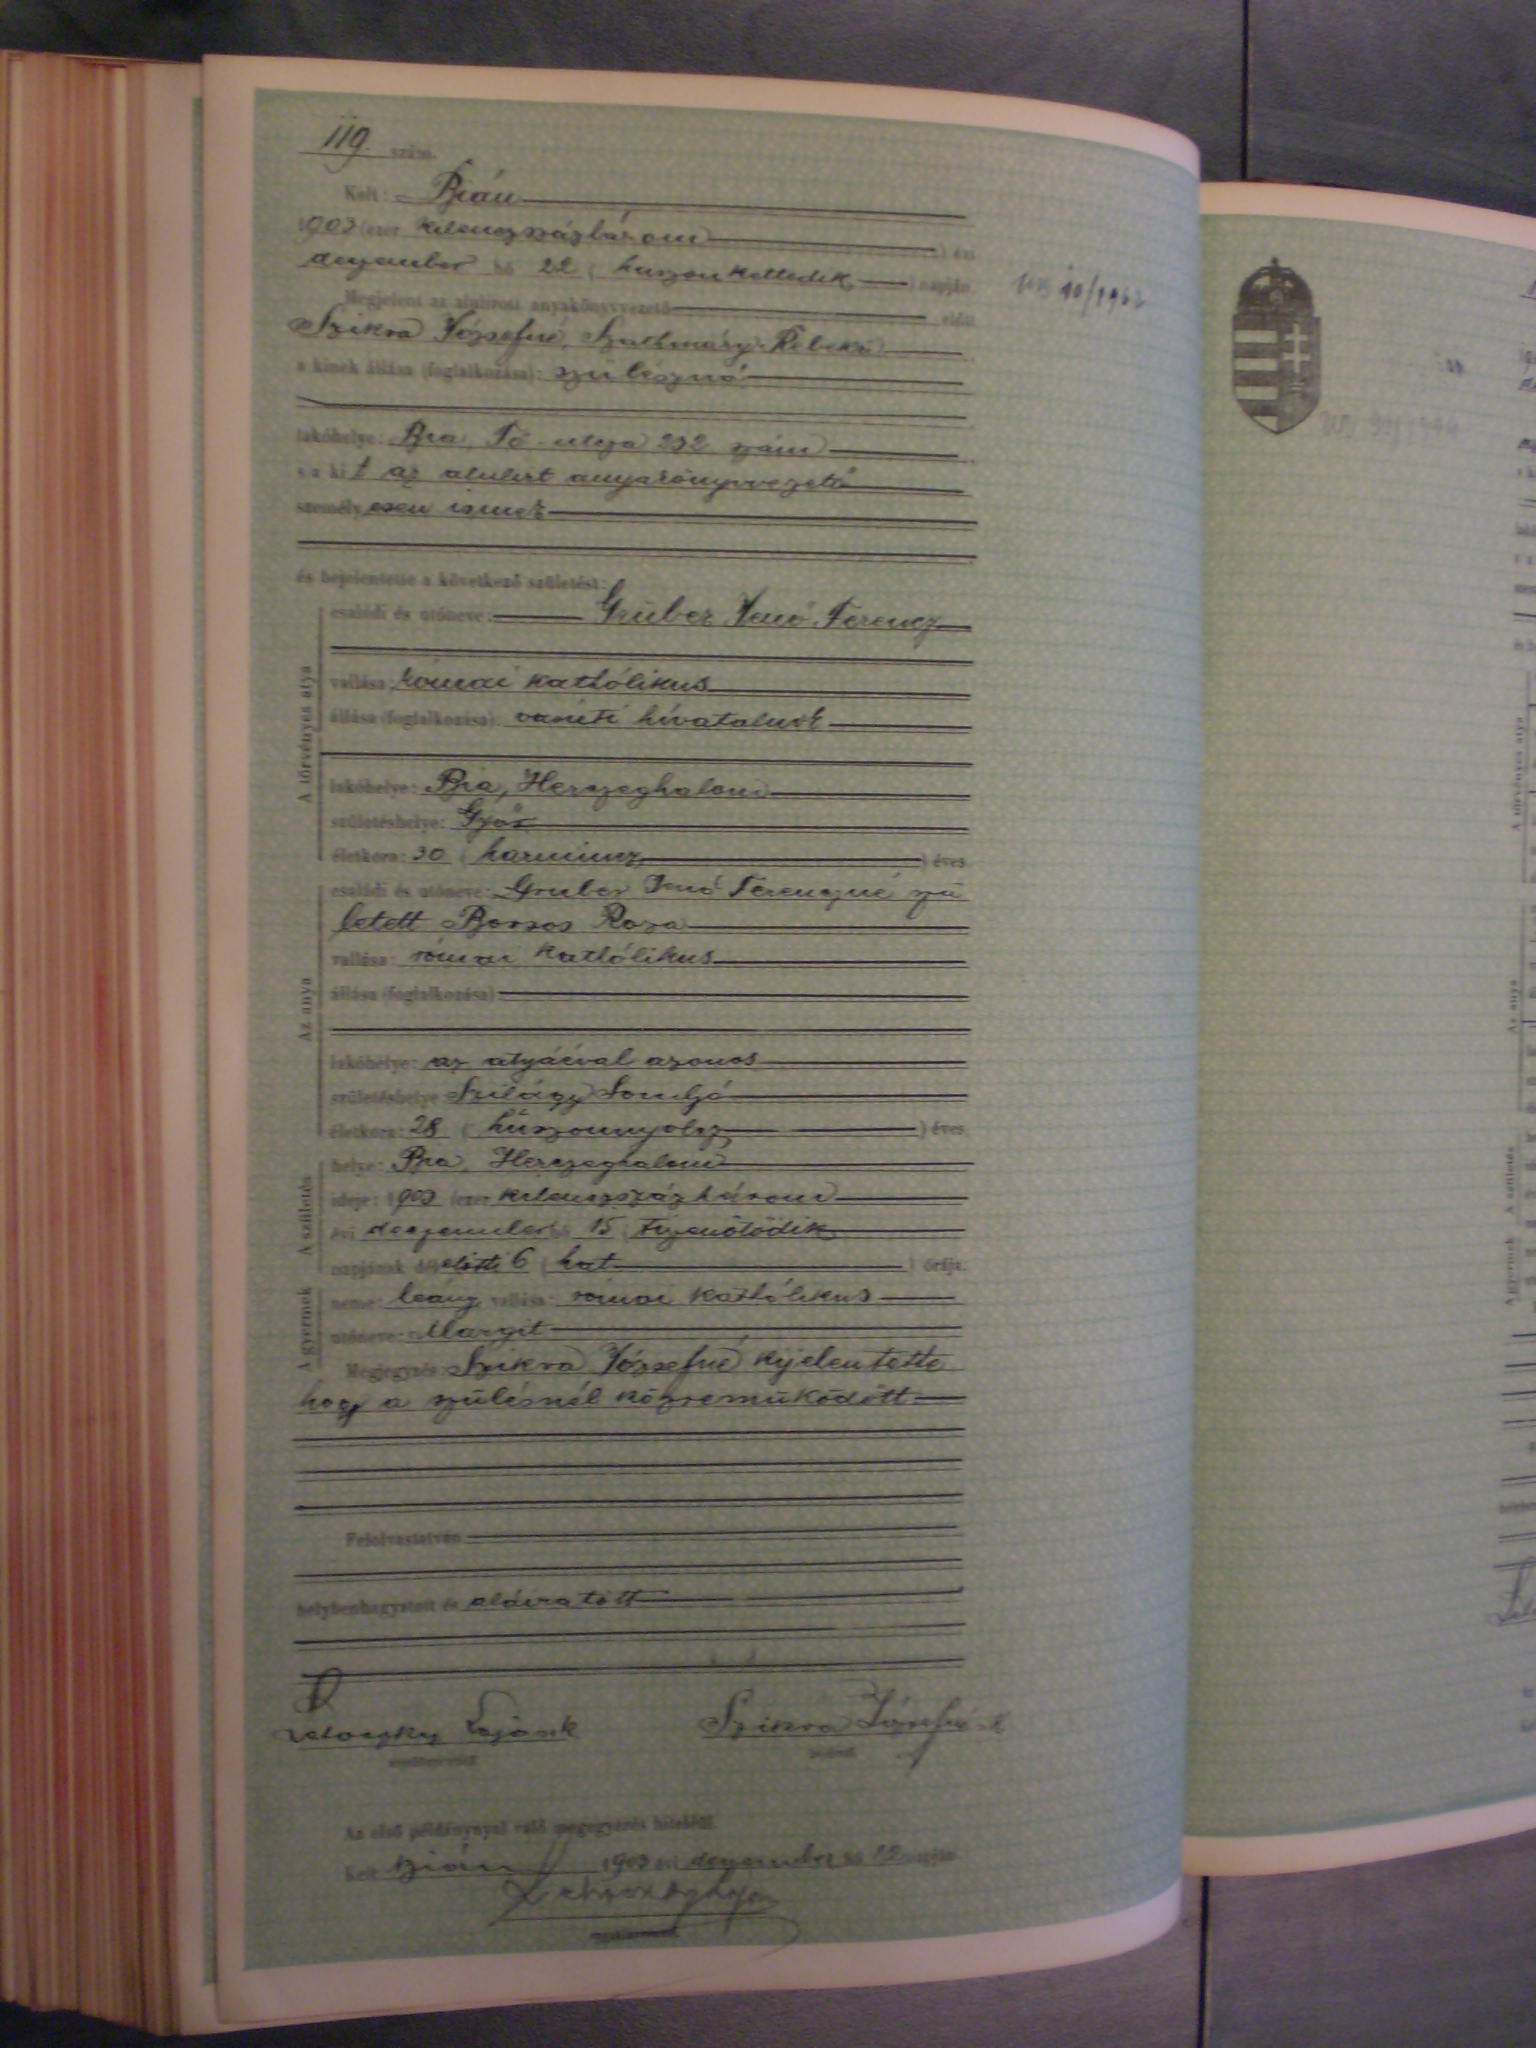 119. szám.
Kelt: Bián
1903 (ezer kilenczszázhárom) évi
deczember hó 22 (huszonkettedik) napján.
Megjelent az alulirott anyakönyvvezető előtt
Szikra Józsefné, Szathmáry Rebeka
a kinek állása (foglalkozása): szülésznő
lakóhelye: Bia, Fő utcza 232 szám
s a kit az alulirt anyakönyvvezető
személyesen ismer
és bejelentette a következő születést:
A törvényes atya
családi és utóneve: Gruber Jenő Ferencz
vallása: római kathólikus
állása (foglalkozása): vasúti hivatalnok
lakóhelye: Bia, Herczeghalom
születéshelye: Győr
életkora: 30 (harmincz) éves
Az anya
családi és utóneve: Gruber Jenő Ferenczné szü
letett Borsos Roza
vallása: római kathólikus
állása (foglalkozása):
lakóhelye: az atyáéval azonos
születéshelye: Szilágy Somlyó
életkora: 28 (huszonnyolcz) éves
A születés
helye: Bia, Herczeghalom
ideje: 1903 (ezer kilenczszázhárom
évi deczember hó 15 (tizenötödik
napjának délelőtti 6 (hat) órája.
A gyermek
neme: leány, vallása: római kathólikus
utóneve: Margit
Megjegyzés: Szikra Józsefné kijelentette
hogy a szülésnél közreműködött
Felolvastatván
helybenhagyatott és aláiratott
Szikra Józsefné
Az első példánynyal való megegyezés hiteléül
Kelt Bián 1903 évi deczember hó 22 napján